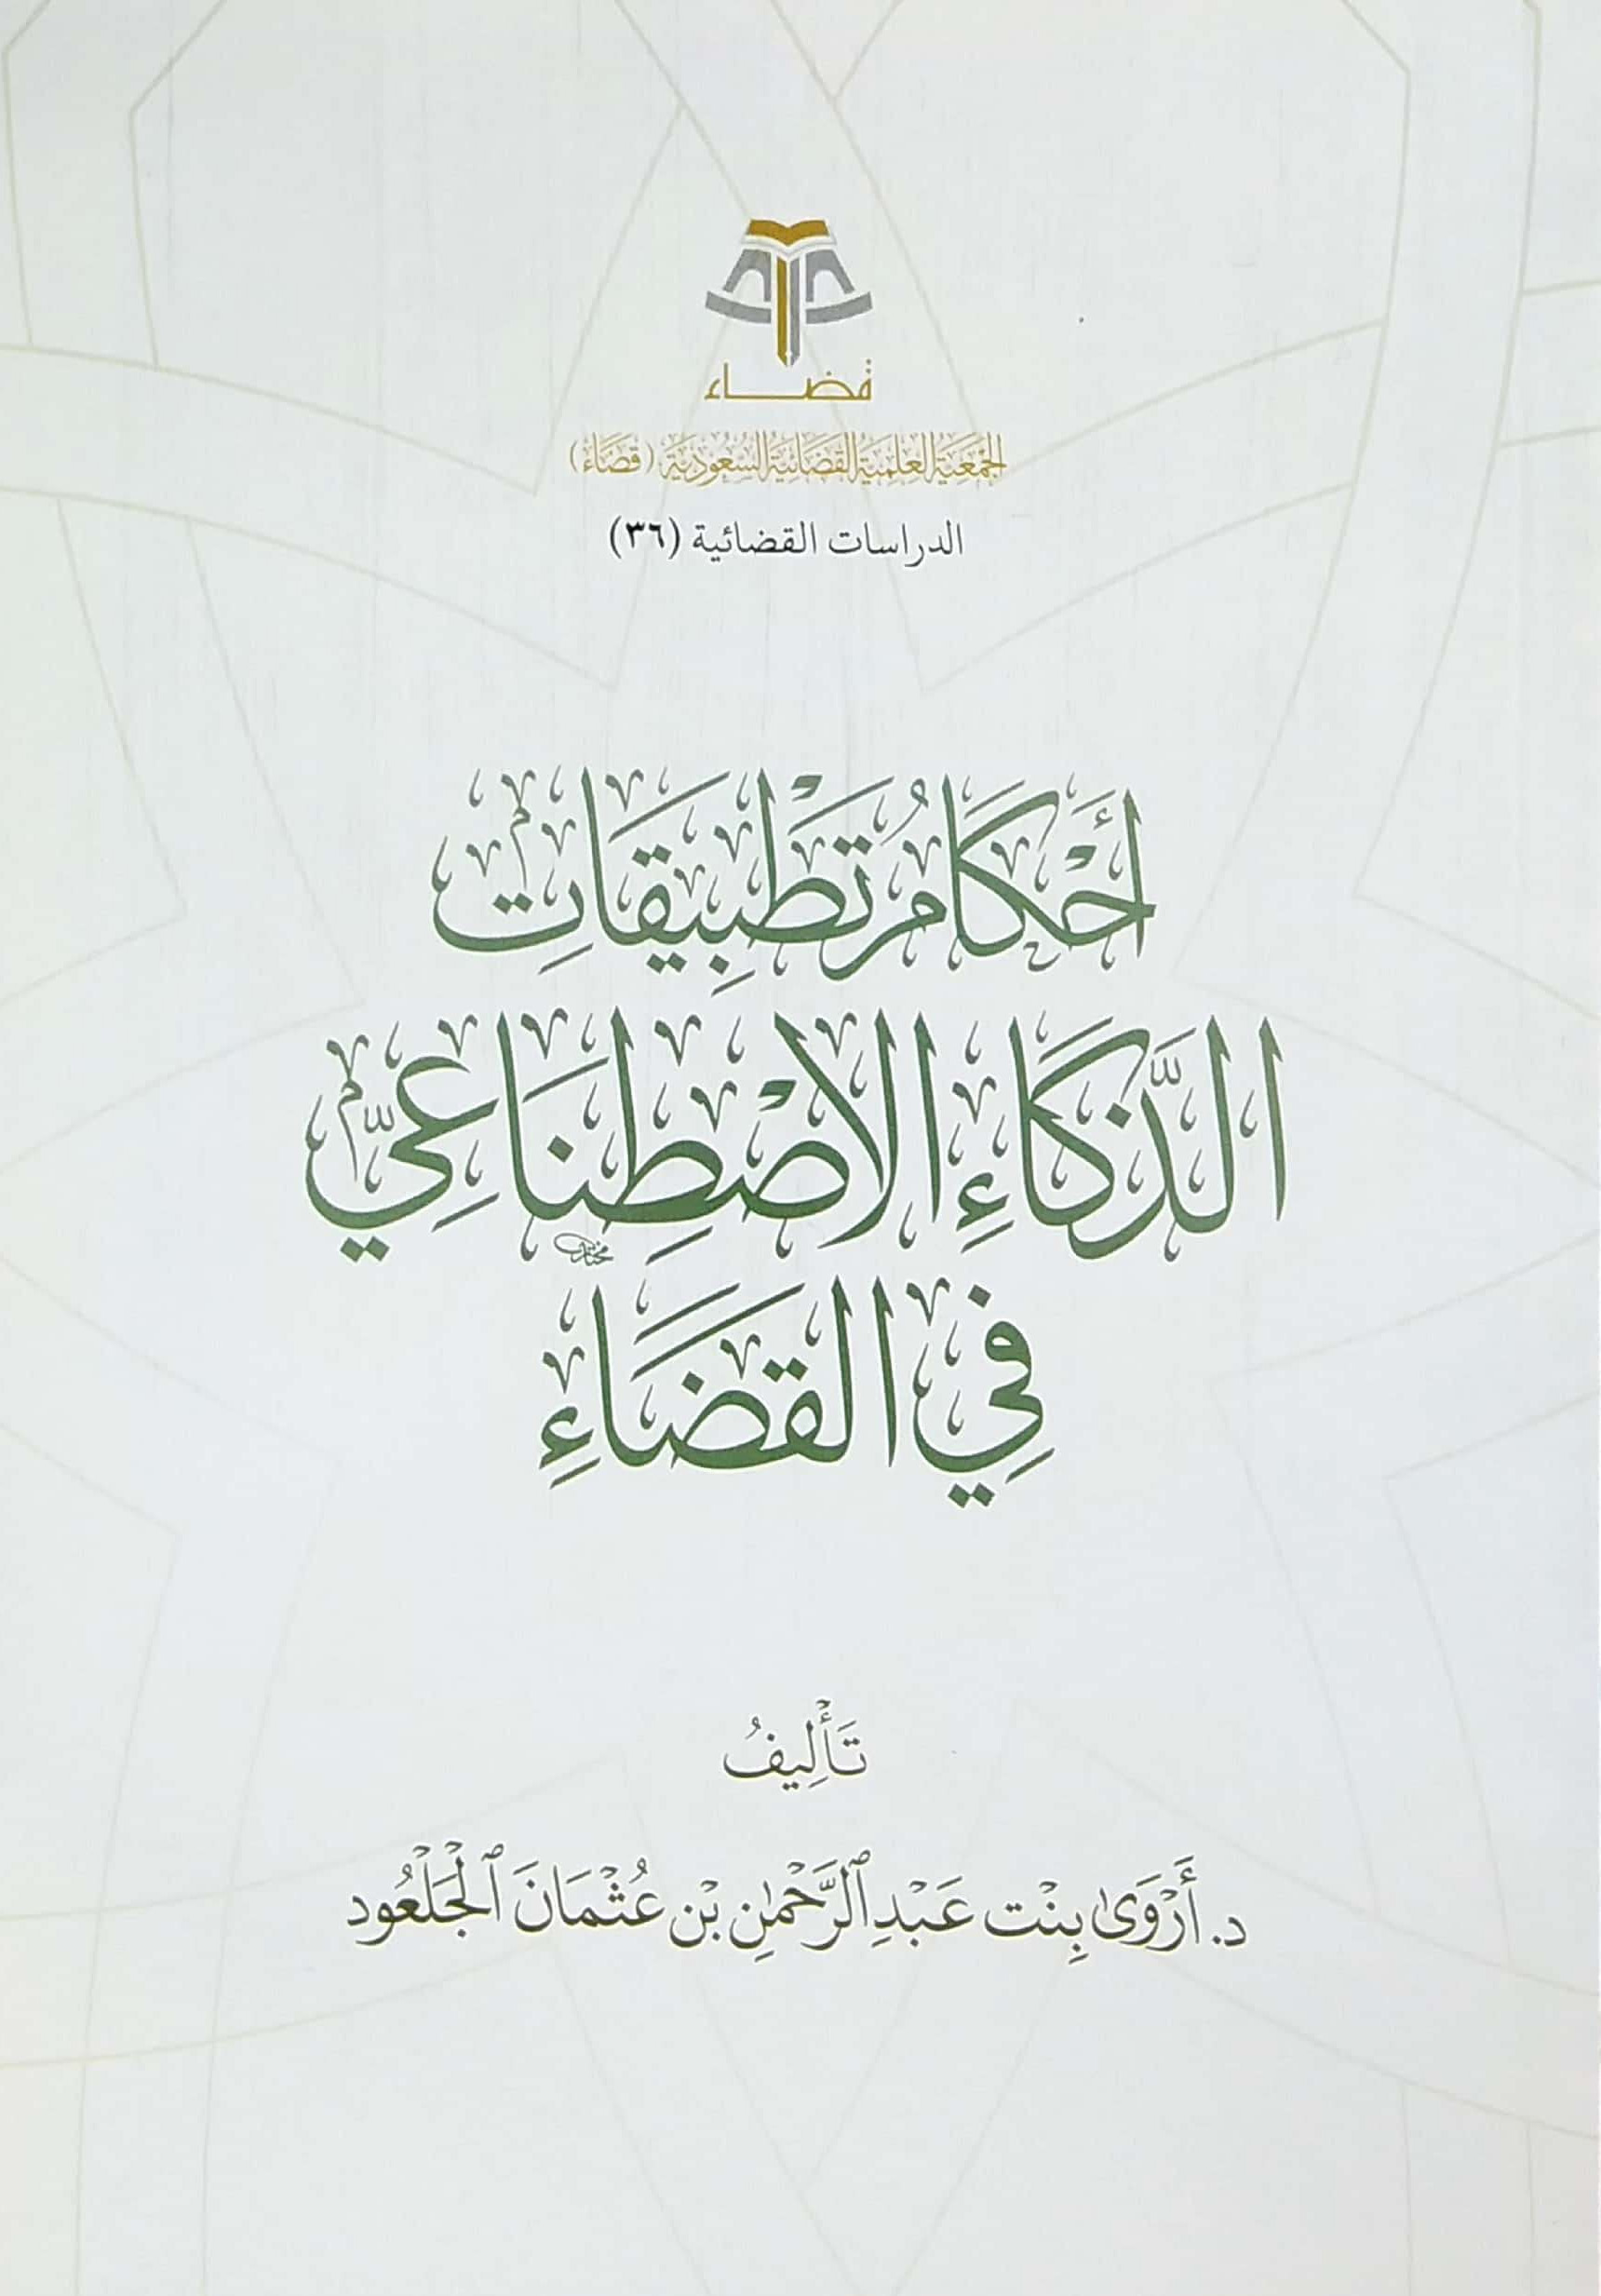 قضاء
الجَمْعِيَّةُ العِلْمِيَّةُ القَضَائِيَّةُ السُّعُودِيَّة (قَضَاء)
الدراسات القضائية (٣٦)
أَحْكَامُ تَطْبِيقَاتِ
الذَّكَاءِ الاصْطِنَاعِيِّ
فِي القَضَاءِ
تَأْلِيفُ
د. أَرْوَىٰ بِنْت عَبْدِ ٱلرَّحْمٰنِ بْن عُثْمَانَ ٱلْجَلْعُود